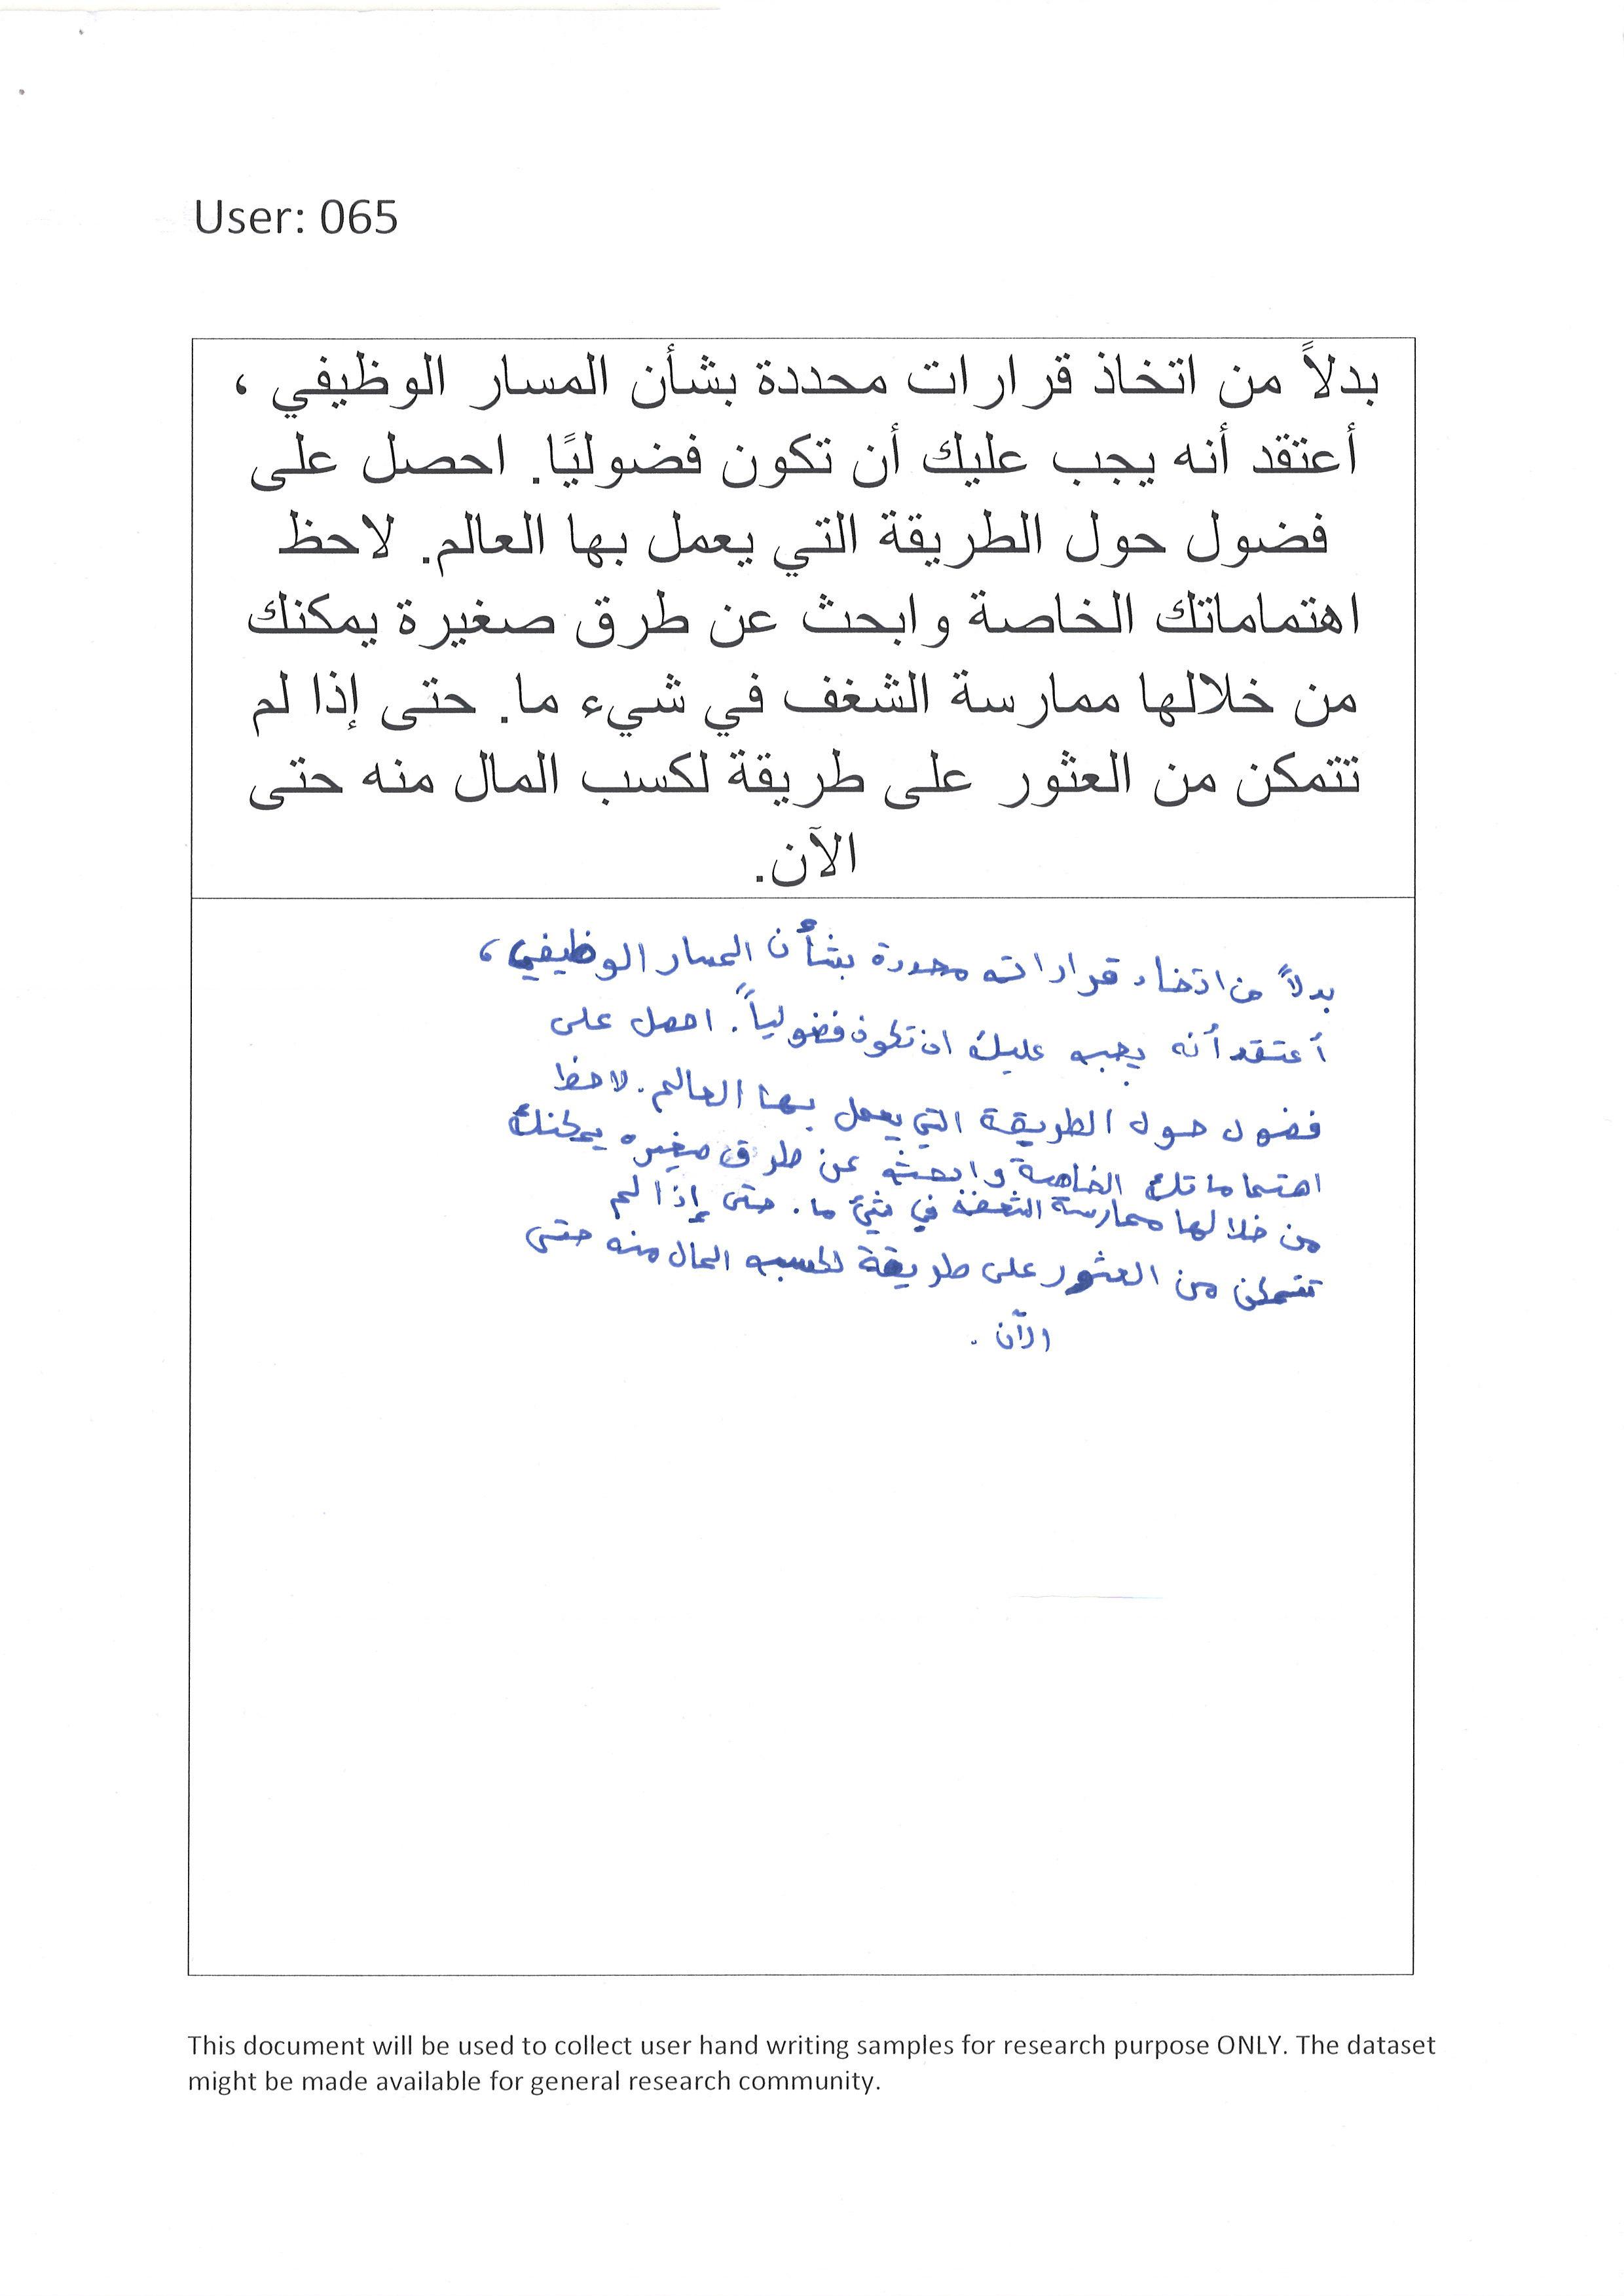 User: 065
بدلاً من اتخاذ قرارات محددة بشأن المسار الوظيفي ،
أعتقد أنه يجب عليك أن تكون فضوليًا. احصل على
فضول حول الطريقة التي يعمل بها العالم. لاحظ
اهتماماتك الخاصة وابحث عن طرق صغيرة يمكنك
من خلالها ممارسة الشغف في شيء ما. حتى إذا لم
تتمكن من العثور على طريقة لكسب المال منه حتى
الآن.
بدلاً من اتخاذ قرارات محددة بشأن المسار الوظيفي ،
أعتقد أنه يجب عليك ان تكون فضولياً. احصل على
فضول حول الطريقة التي يعمل بها العالم. لاحظ
اهتماماتك الخاصة وابحث عن طرق صغيره يمكنك
من خلالها ممارسة الشغف في شيئ ما. حتى إذا لم
تتمكن من العثور على طريقة لكسب المال منه حتى
الآن .
This document will be used to collect user hand writing samples for research purpose ONLY. The dataset
might be made available for general research community.